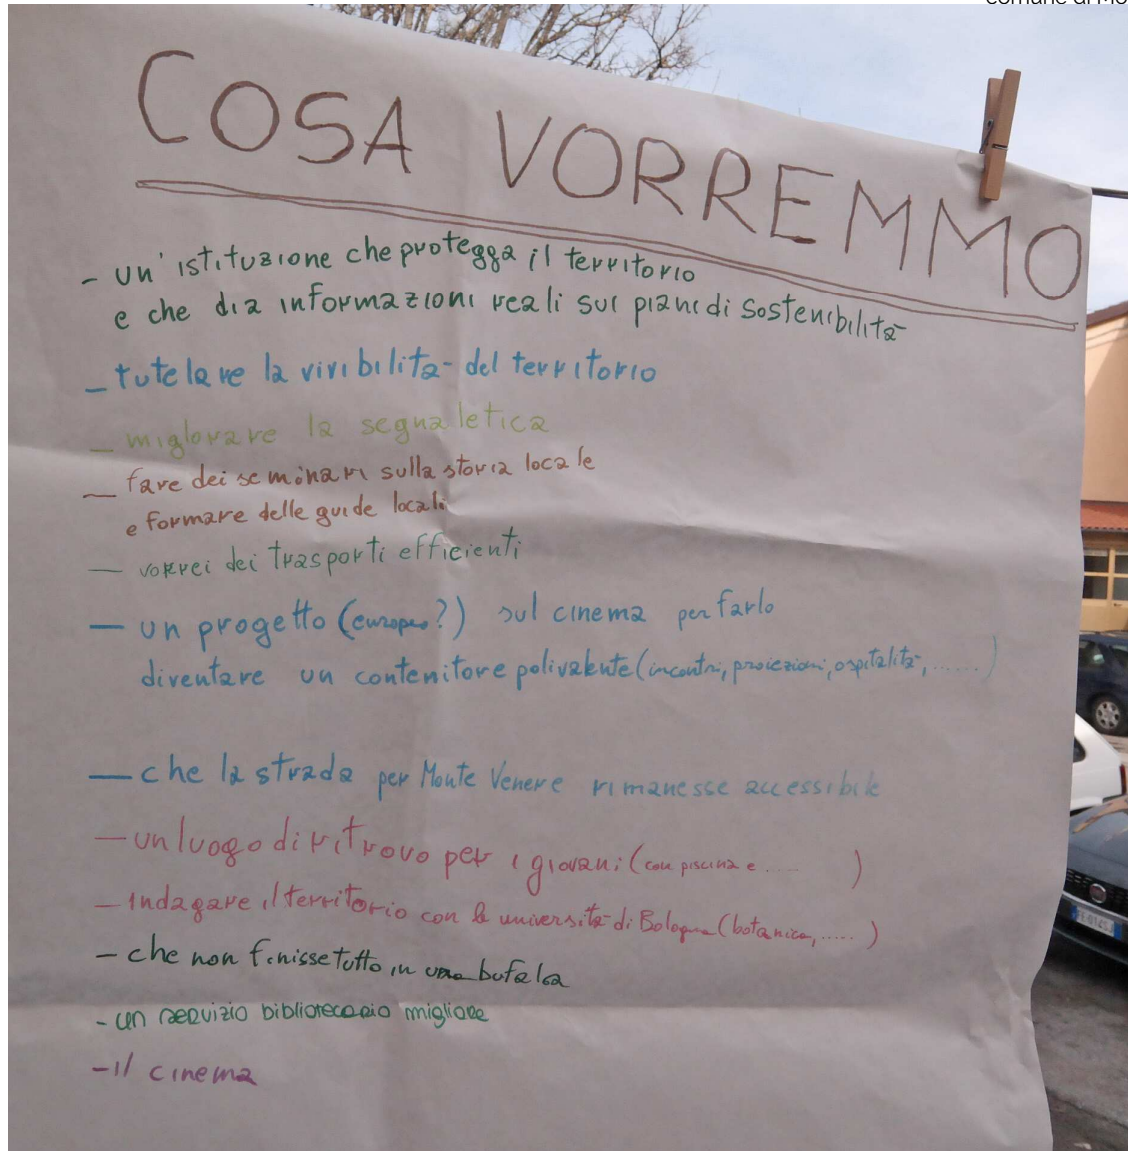 COSA VORREMMO
- un'istituzione che protegga il territorio
e che dia informazioni reali sui piani di sostenibilità
- tutelare la vivibilità del territorio
- miglorare la segnaletica
- fare dei seminari sulla storia locale
e formare delle guide locali
- vorrei dei trasporti efficienti
- un progetto (europeo?) sul cinema per farlo
diventare un contenitore polivalente (incontri, proiezioni, ospitalità, ......)
- che la strada per Monte Venere rimanesse accessibile
- un luogo di ritrovo per i giovani (con piscina e .... )
- Indagare il territorio con le università di Bologna (botanica, ..... )
- che non finisse tutto in una bufala
- un servizio bibliotecario migliore
- il cinema